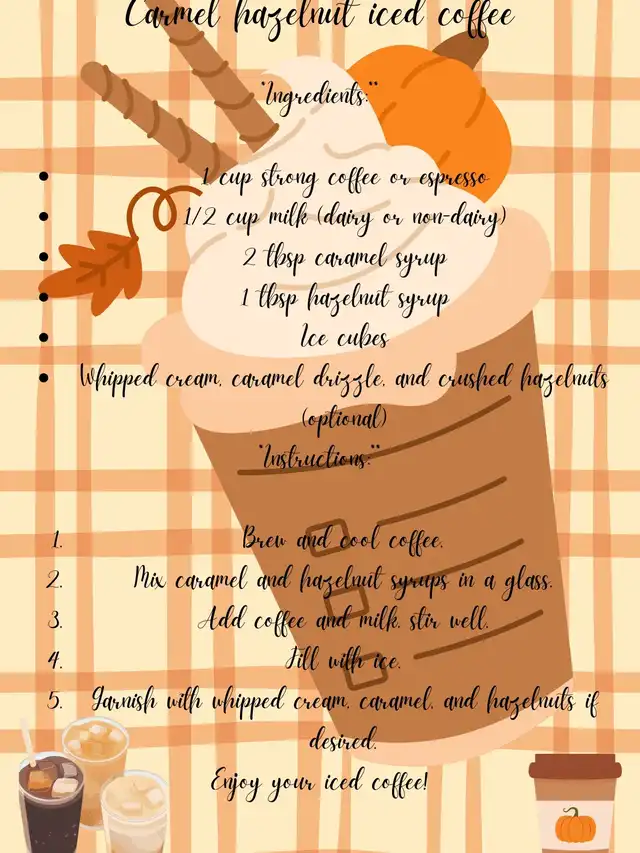 Carmel hazelnut iced coffee
*Ingredients:**
1 cup strong coffee or espresso
1/2 cup milk (dairy or non-dairy)
2 tbsp caramel syrup
1 tbsp hazelnut syrup
Ice cubes
Whipped cream, caramel drizzle, and crushed hazelnuts
(optional)
*Instructions:**
1. Brew and cool coffee.
2. Mix caramel and hazelnut syrups in a glass.
3. Add coffee and milk, stir well.
4. Fill with ice.
5. Garnish with whipped cream, caramel, and hazelnuts if
desired.
Enjoy your iced coffee!